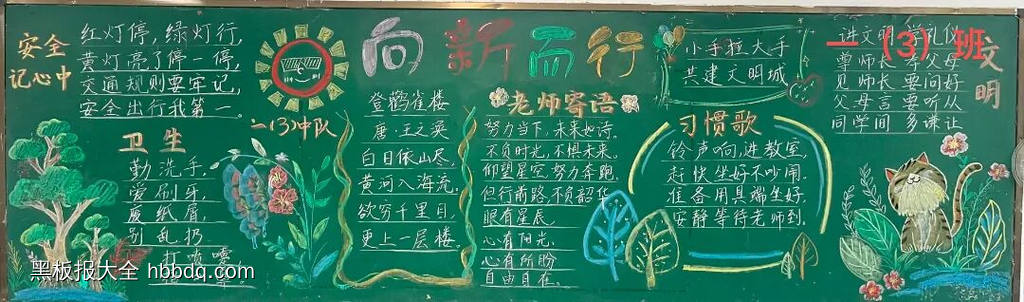 安全
记心中
红灯停，绿灯行，
黄灯亮了停一停，
交通规则要牢记，
安全出行我第一。
卫生
勤洗手，
爱刷牙，
废纸屑，
别乱扔
一(3)中队
向新而行
登鹳雀楼
唐·王之涣
白日依山尽，
黄河入海流。
欲穷千里目，
更上一层楼。
老师寄语
努力当下，未来如诗。
不负时光，不惧未来。
仰望星空，努力奔跑，
但行前路，不负韶华
眼有星辰，
心有阳光，
心有所盼
自由自在。
小手拉大手
共建文明城
习惯歌
铃声响，进教室，
赶快坐好不吵闹。
准备用具端坐好，
安静等待老师到。
一（3）班
文明
讲文明 礼仪
尊师长 父母
见师长 要问好
父母言 要听从
同学间 多谦让
黑板报大全 hbbdq.com